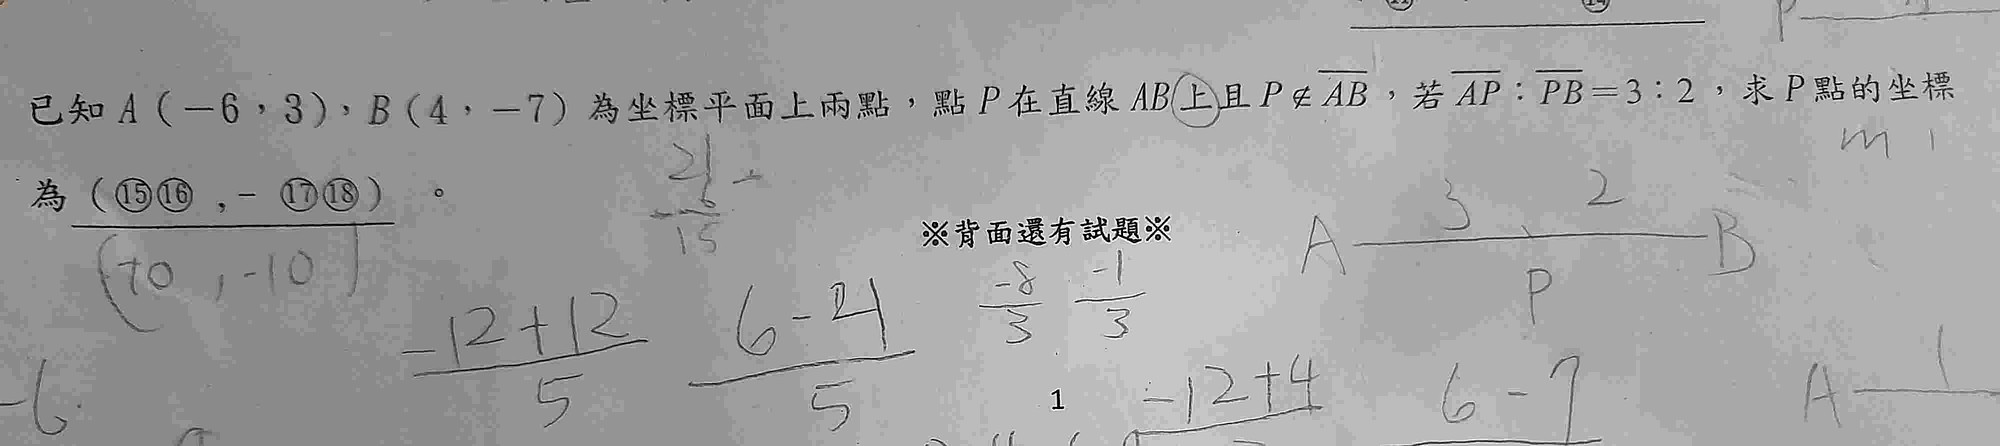 ⑪ ⑭
P
已知 A（－6，3），B（4，－7）為坐標平面上兩點，點 P 在直線 AB 上且 P ∉ AB，若 AP：PB＝3：2，求 P 點的坐標
m 1
為（⑮⑯ ,－ ⑰⑱）。
21
15
3 2
※背面還有試題※
A B
P
(10 , -10)
-8/3 -1/3
-12+12/5 6-21/5
-12+4 6-7
-6
A 1
1